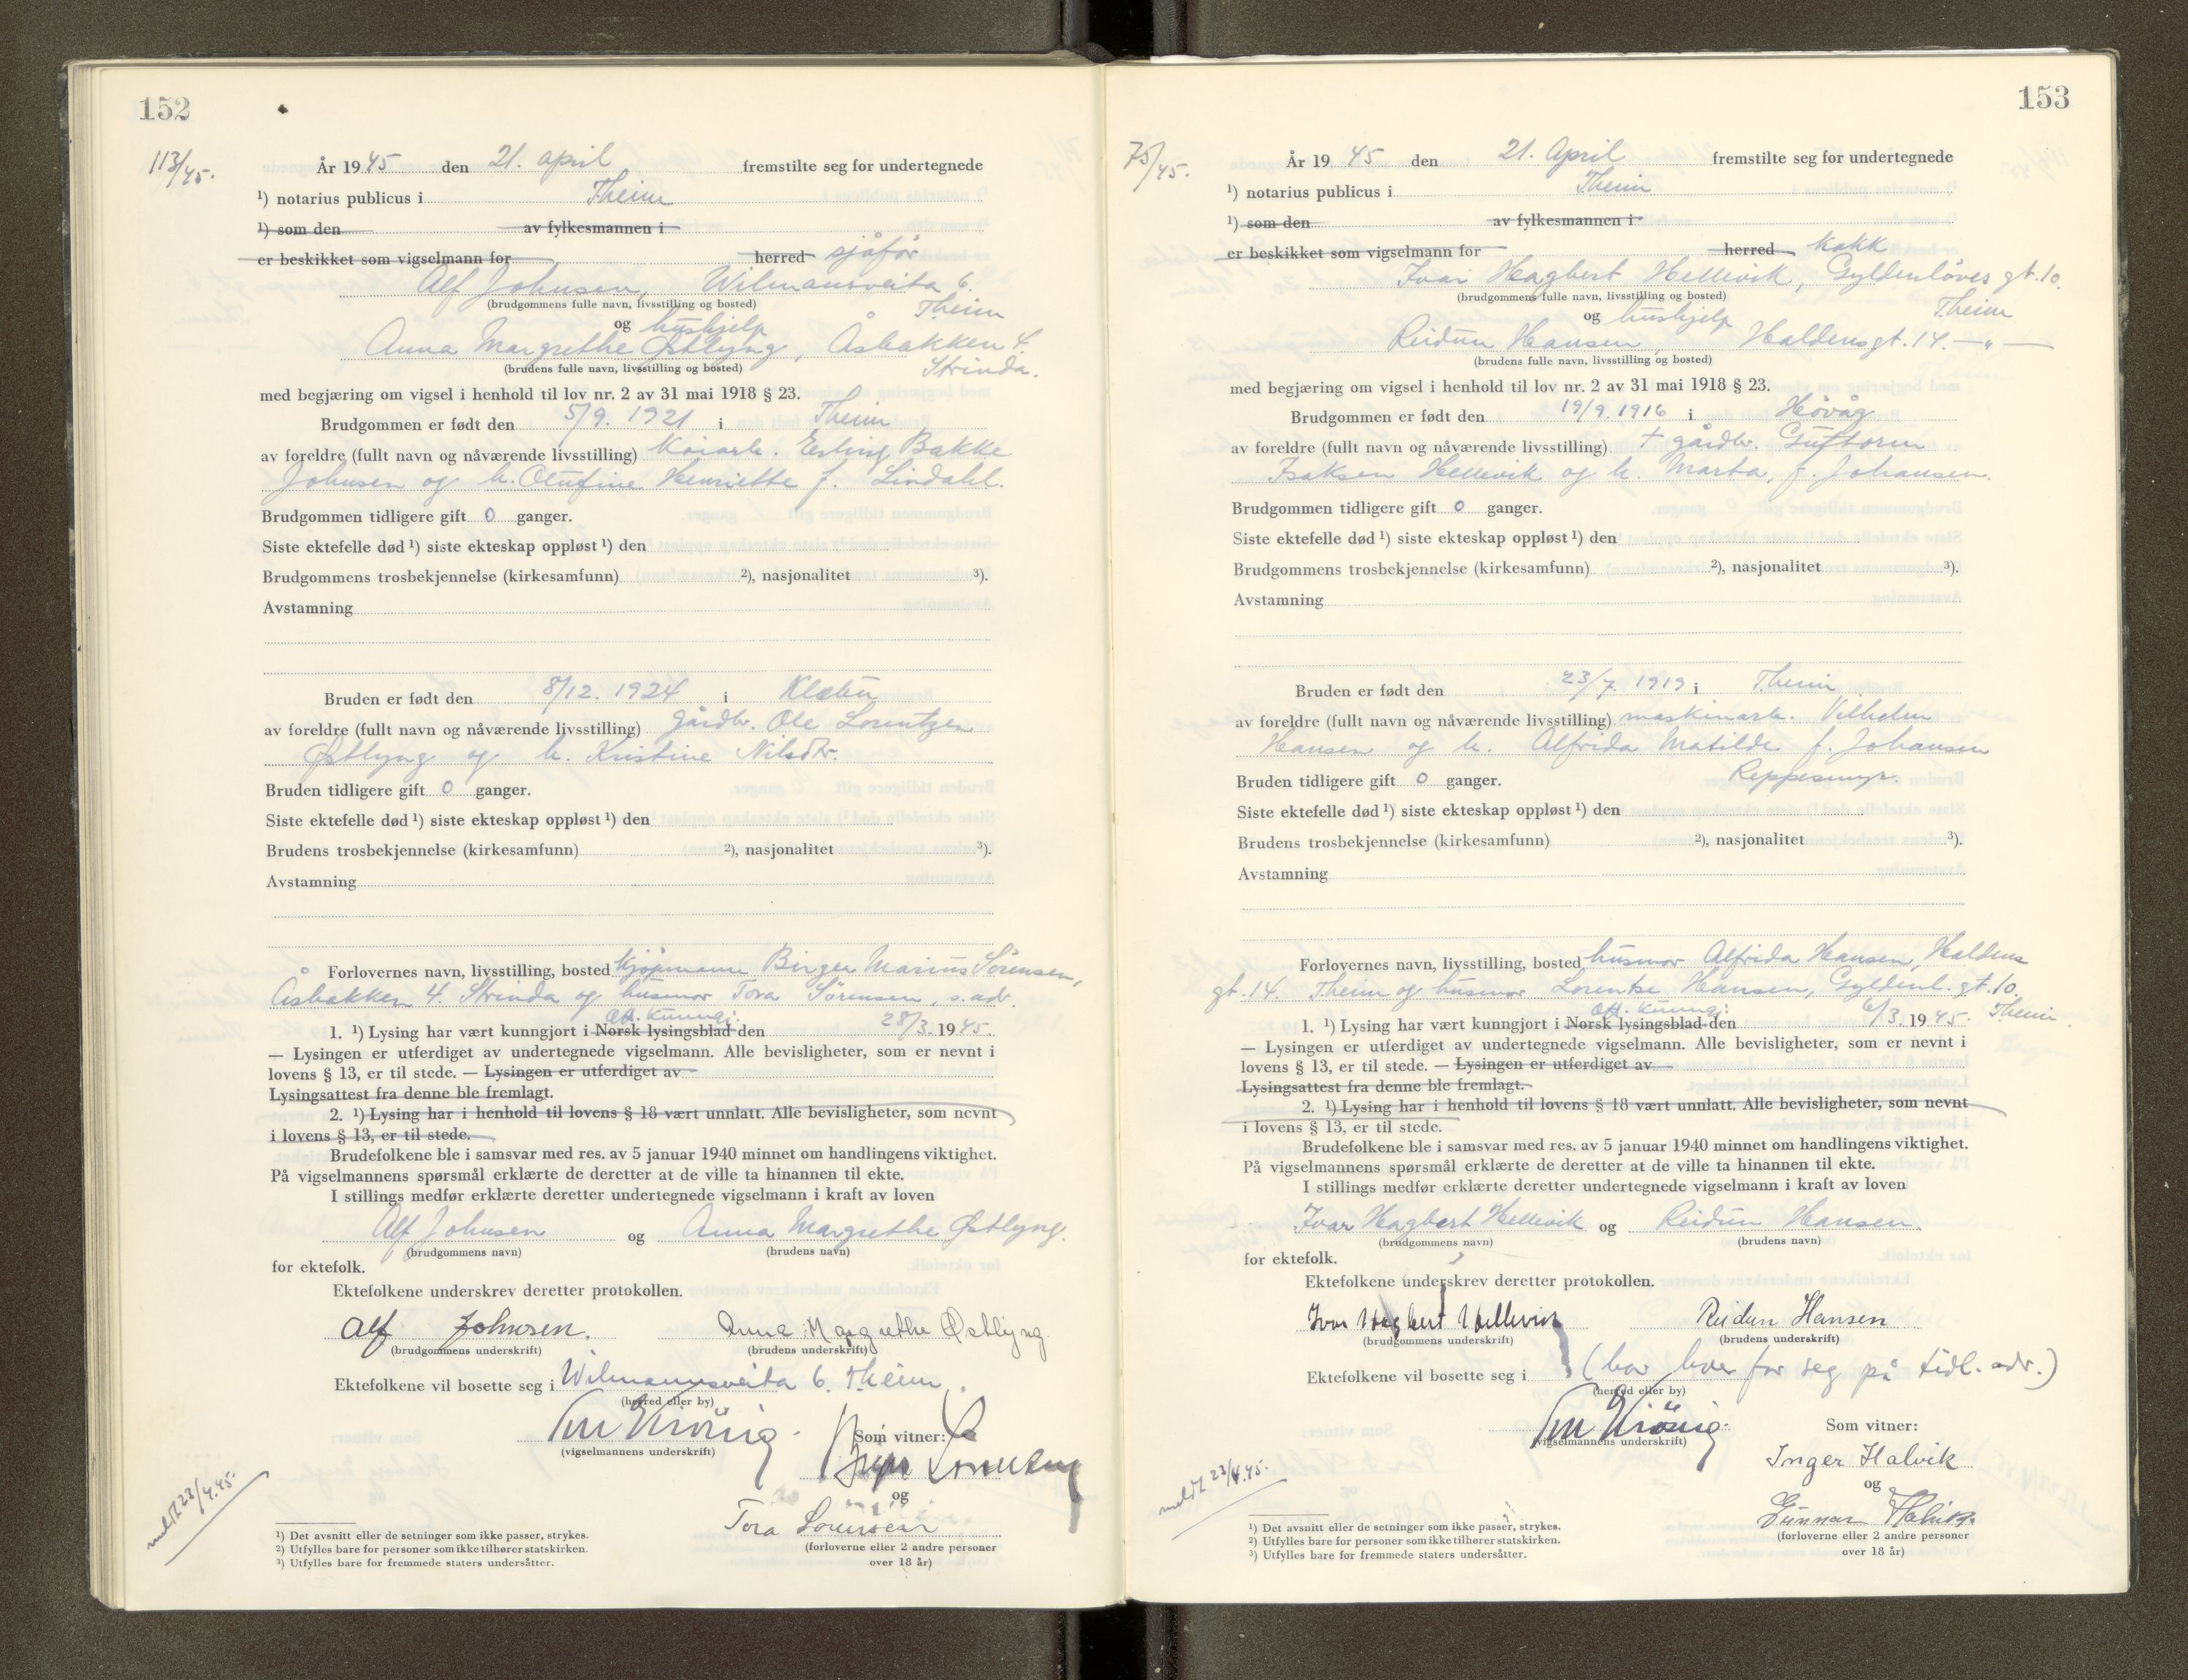 152
113/45.
År 1945 den 21. april fremstilte seg for undertegnede
¹) notarius publicus i Theim
¹) som den av fylkesmannen i
er beskikket som vigselmann for herred sjåfør
Alf Johnsen, Wilmannsveita 6.
(brudgommens fulle navn, livsstilling og bosted) Theim
og hushjelp
Anna Margrethe Østlyng, Åsbakken 4.
(brudens fulle navn, livsstilling og bosted) Strinda.
med begjæring om vigsel i henhold til lov nr. 2 av 31 mai 1918 § 23.
Brudgommen er født den 5/9. 1921 i Theim
av foreldre (fullt navn og nåværende livsstilling) Kaiarb. Erling Bakke
Johnsen og h. Olufine Henriette f. Lindahl.
Brudgommen tidligere gift 0 ganger.
Siste ektefelle død ¹) siste ekteskap oppløst ¹) den
Brudgommens trosbekjennelse (kirkesamfunn) ²), nasjonalitet ³).
Avstamning
Bruden er født den 8/12. 1924 i Klæbu
av foreldre (fullt navn og nåværende livsstilling) gårdbr. Ole Lorentzen
Østlyng og h. Kristine Nilsdtr.
Bruden tidligere gift 0 ganger.
Siste ektefelle død ¹) siste ekteskap oppløst ¹) den
Brudens trosbekjennelse (kirkesamfunn) ²), nasjonalitet ³).
Avstamning
Forlovernes navn, livsstilling, bosted Kjøpmann Birger Marius Sørensen,
Åsbakken 4. Strinda og husmor Tora Sørensen, s. adr.
Off. kunngj.
1. ¹) Lysing har vært kunngjort i Norsk lysingsblad den 28/3. 1945.
— Lysingen er utferdiget av undertegnede vigselmann. Alle bevisligheter, som er nevnt i
lovens § 13, er til stede. — Lysingen er utferdiget av
Lysingsattest fra denne ble fremlagt.
2. ¹) Lysing har i henhold til lovens § 18 vært unnlatt. Alle bevisligheter, som nevnt
i lovens § 13, er til stede.
Brudefolkene ble i samsvar med res. av 5 januar 1940 minnet om handlingens viktighet.
På vigselmannens spørsmål erklærte de deretter at de ville ta hinannen til ekte.
I stillings medfør erklærte deretter undertegnede vigselmann i kraft av loven
Alf Johnsen og Anna Margrethe Østlyng.
(brudgommens navn) (brudens navn)
for ektefolk.
Ektefolkene underskrev deretter protokollen.
Alf Johnsen. Anna Margrethe Østlyng.
(brudgommens underskrift) (brudens underskrift)
Ektefolkene vil bosette seg i Wilmannsveita 6. Theim.
(herred eller by)
(vigselmannens underskrift) Som vitner:
og
Tora Sørensen
(forloverne eller 2 andre personer
over 18 år)
meldt 23/4.45.
¹) Det avsnitt eller de setninger som ikke passer, strykes.
²) Utfylles bare for personer som ikke tilhører statskirken.
³) Utfylles bare for fremmede staters undersåtter.
153
75/45.
År 1945 den 21. April fremstilte seg for undertegnede
¹) notarius publicus i Theim
¹) som den av fylkesmannen i
er beskikket som vigselmann for herred kokk
Ivar Hagbert Hellevik, Gyldenløves gt. 10.
(brudgommens fulle navn, livsstilling og bosted) Theim
og hushjelp
Reidun Hansen, Haldens gt. 14. — " —
(brudens fulle navn, livsstilling og bosted)
med begjæring om vigsel i henhold til lov nr. 2 av 31 mai 1918 § 23.
Brudgommen er født den 19/9. 1916 i Høvåg
av foreldre (fullt navn og nåværende livsstilling) + gårdbr. Guttorm
Isaksen Hellevik og h. Marta, f. Johansen.
Brudgommen tidligere gift 0 ganger.
Siste ektefelle død ¹) siste ekteskap oppløst ¹) den
Brudgommens trosbekjennelse (kirkesamfunn) ²), nasjonalitet ³).
Avstamning
Bruden er født den 23/7. 1919 i Theim
av foreldre (fullt navn og nåværende livsstilling) maskinarb. Vilhelm
Hansen og h. Alfrida Matilde f. Johansen
Reppesmyr.
Bruden tidligere gift 0 ganger.
Siste ektefelle død ¹) siste ekteskap oppløst ¹) den
Brudens trosbekjennelse (kirkesamfunn) ²), nasjonalitet ³).
Avstamning
Forlovernes navn, livsstilling, bosted husmor Alfrida Hansen, Haldens
gt. 14. Theim og husmor Lorentse Hansen, Gyldenl. gt. 10.
Off. kunngj. Theim
1. ¹) Lysing har vært kunngjort i Norsk lysingsblad den 6/3. 1945.
— Lysingen er utferdiget av undertegnede vigselmann. Alle bevisligheter, som er nevnt i
lovens § 13, er til stede. — Lysingen er utferdiget av
Lysingsattest fra denne ble fremlagt.
2. ¹) Lysing har i henhold til lovens § 18 vært unnlatt. Alle bevisligheter, som nevnt
i lovens § 13, er til stede.
Brudefolkene ble i samsvar med res. av 5 januar 1940 minnet om handlingens viktighet.
På vigselmannens spørsmål erklærte de deretter at de ville ta hinannen til ekte.
I stillings medfør erklærte deretter undertegnede vigselmann i kraft av loven
Ivar Hagbert Hellevik og Reidun Hansen.
(brudgommens navn) (brudens navn)
for ektefolk.
Ektefolkene underskrev deretter protokollen.
Ivar Hagbert Hellevik Reidun Hansen
(brudgommens underskrift) (brudens underskrift)
Ektefolkene vil bosette seg i (bor hver for seg på tidl. adr.)
(herred eller by)
(vigselmannens underskrift) Som vitner:
Inger Halvik
og
Gunnar
(forloverne eller 2 andre personer
over 18 år)
meldt 23/4.45.
¹) Det avsnitt eller de setninger som ikke passer, strykes.
²) Utfylles bare for personer som ikke tilhører statskirken.
³) Utfylles bare for fremmede staters undersåtter.